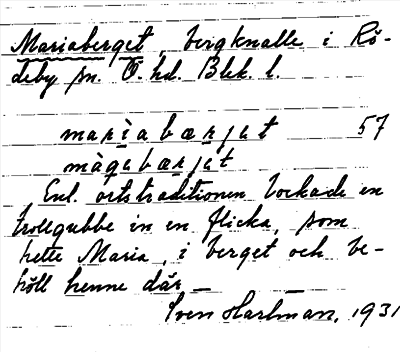 Mariaberget, bergknalle i Rö-
deby sn. Ö. hd. Blek. l.
marìabærjet 57
màqebærjet
Enl. ortstraditionen lockade en
trollgubbe in en flicka, som
hette Maria, i berget och be-
höll henne där —
Sven Hartman, 1931